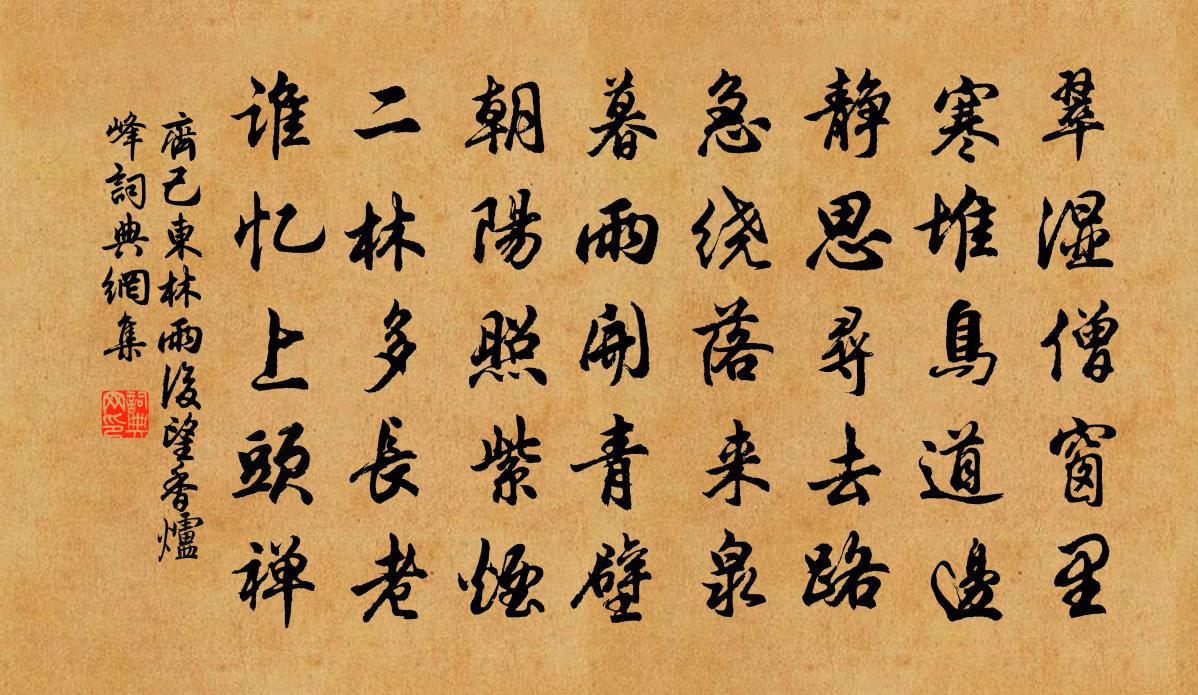 翠湿僧窗里
寒堆鳥道邊
静思尋去路
急绕落来泉
暮雨開青壁
朝陽照紫煙
二林多長老
谁忆上頭禅
齊己東林雨後望香爐
峰詞典網集
詞典
网印